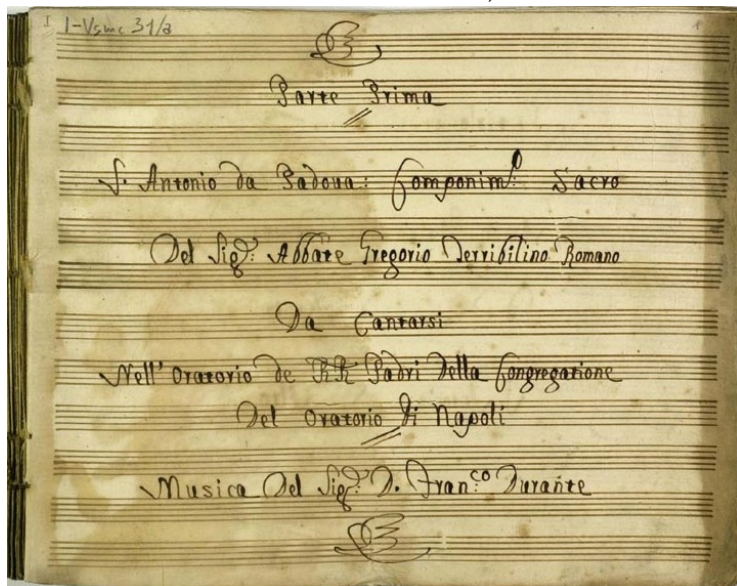 I I-Vsmc 31/a 1
Parte Prima
S. Antonio da Padoua: Componim.to Sacro
Del Sig.r: Abbate Gregorio Terribilino Romano
Da Cantarsi
Nell' Oratorio de RR Padri della Congregatione
Del Oratorio di Napoli
Musica Del Sig.r: D. Fran.co Durante